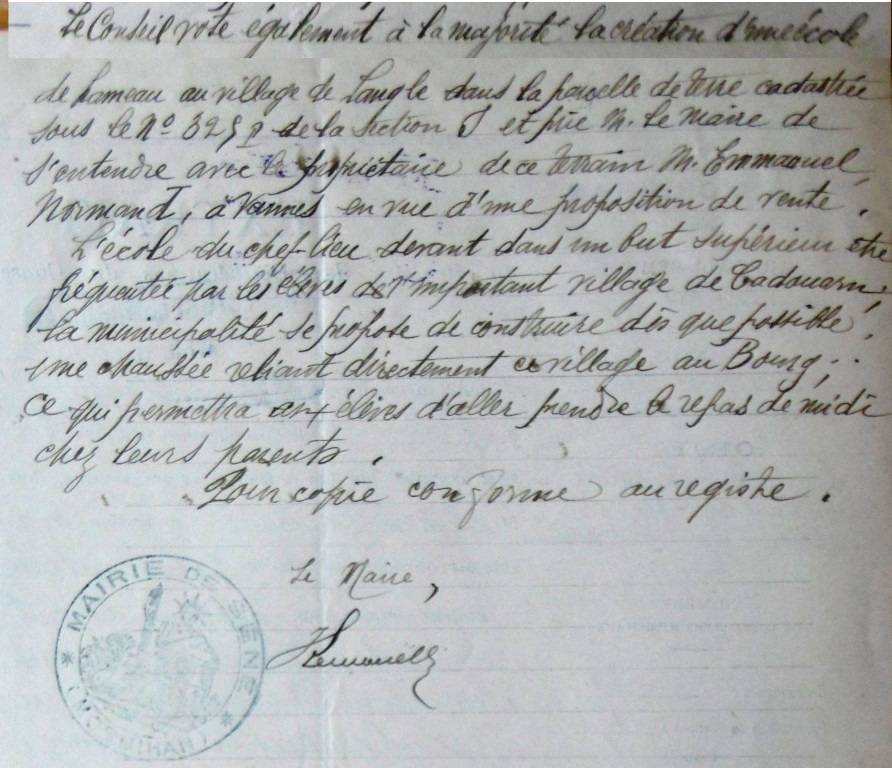 Le Conseil vote également à la majorité la création d'une école
de hameau au village de Langle dans la parcelle de terre cadastrée
sous le N° 325 p de la section J et prie M. le Maire de
s'entendre avec le propriétaire de ce terrain M. Emmanuel
Normand, à Vannes en vue d'une proposition de vente.
L'école du chef-lieu devant dans un but supérieur être
fréquentée par les élèves de l'important village de Cadouarn,
la municipalité se propose de construire dès que possible,
une chaussée reliant directement ce village au Bourg;
ce qui permettra aux élèves d'aller prendre le repas de midi
chez leurs parents.
Pour copie conforme au registre.
Le Maire,
MAIRIE DE SENE
(MORBIHAN)